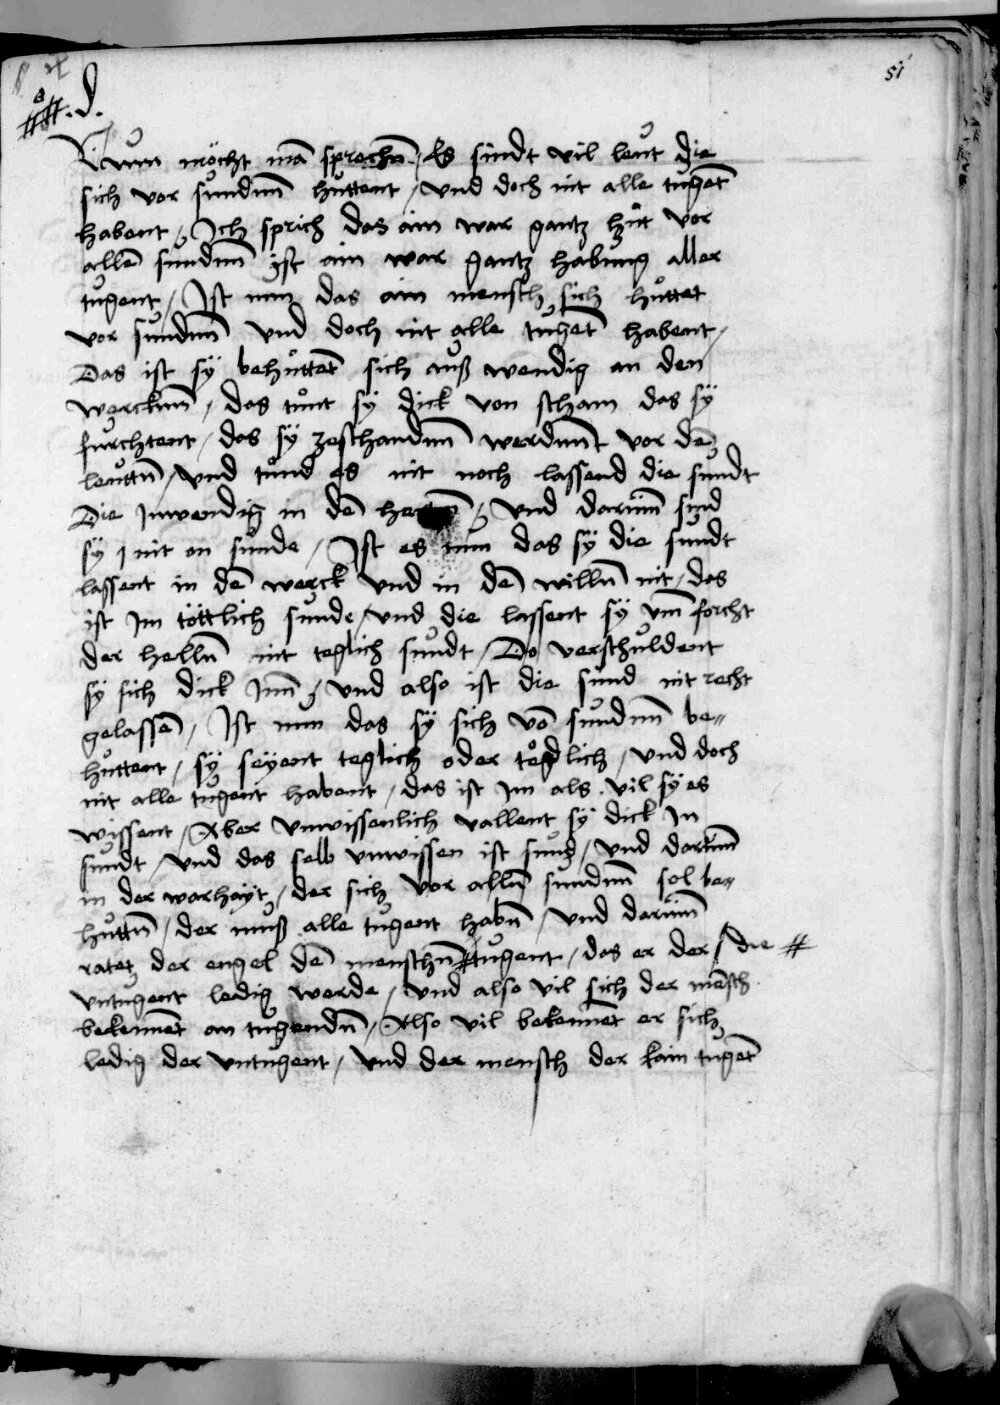 51
d.
Nun möcht mā sprechn̄ / Es sindt vil leut die
sich vor sundūn huttent / vnd doch nit alle tugēt
habent / Ich sprich das ain war gantz hůt vor
allē sundūn ist ain war gantz habung aller
tugent / Ist nun das ain mensch sich hůttet
vor sundūn vnd doch nit alle tugēt habent /
Das ist sÿ behůttēt sich auß wendig an den
werckūn / das tůnt sÿ dick von scham das sÿ
furchtent / das sÿ zeschandūn werdūnt vor dē
leuttn̄ / vnd tůnd es nit noch lassend die sundt
Die Inwendig in dē / vnd darūm sind
sÿ nit on sunde / Ist es nūn das sÿ die sundt
lassent in dē werck vnd in dē willn̄ nit / das
ist Im töttlich sunde / vnd die lassent sÿ vm̄ forcht
der helln̄ nit teglich sundt / Do verschuldent
sÿ sich dick Inn̄ / vnd also ist die sund nit recht
gelassē / Ist nun das sÿ sich vō sundūn be„
hůttent / sÿ seÿent teglich oder tödlich / vnd doch
nit alle tugent habent / das ist Im als vil sÿ es
wissent / Aber vnwissenlich vallent sÿ dick In
sundt / vnd das selb vnwissen ist sund / vnd darūm
in der warhaÿt / der sich vor alln̄ sundūn sol be„
hůttn̄ / der muß alle tugent habn̄ / vnd darūm
ratet der engel dē menschn̄ # tugent / das er der / die #
vntugent ledig werde / vnd also vil sich der mēsch
bekennēt an tugendn̄ / Also vil bekennēt er sich
ledig der vntugent / vnd der mensch der kain tugēt